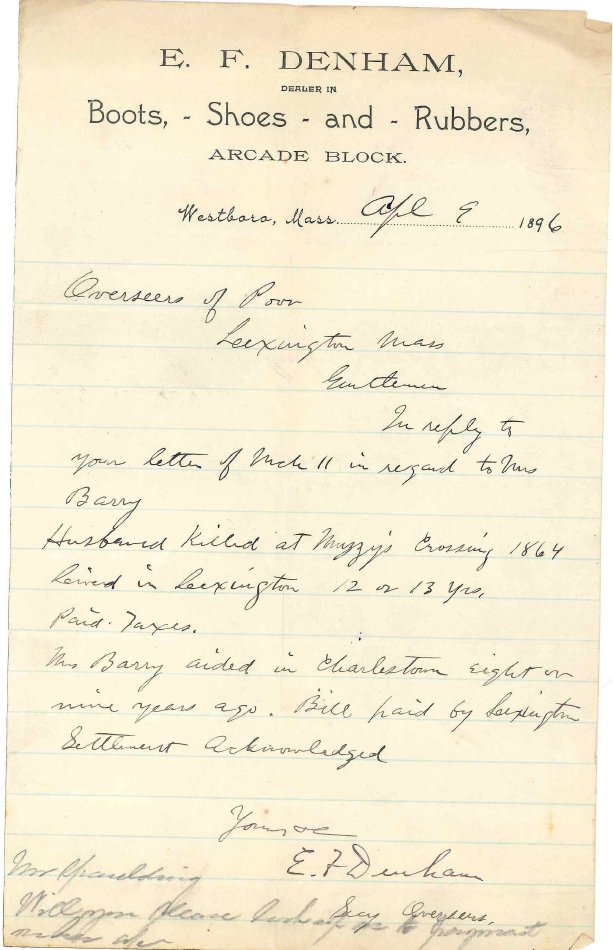 E. F. DENHAM,
DEALER IN
Boots, - Shoes - and - Rubbers,
ARCADE BLOCK.
Westboro, Mass. Apl 9 1896
Overseers of Poor
Lexington Mass
Gentlemen
In reply to
your letter of Mch 11 in regard to Mrs
Barry
Husband Killed at Muzzy's Crossing 1864
Lived in Lexington 12 or 13 Yrs.
Paid Taxes.
Mrs Barry aided in Charlestown eight or
nine years ago. Bill paid by Lexington
Settlement Acknowledged
Yours &c
E. F Denham
Secy Overseers.
Mr Spaulding
Will you please look up as to